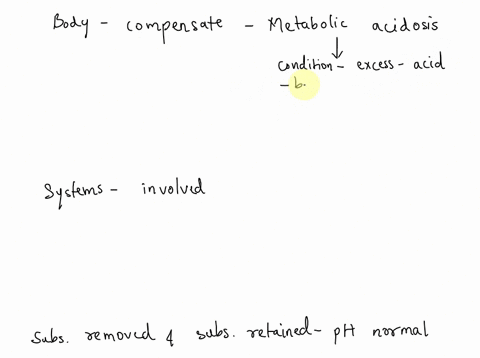 Body - compensate - Metabolic acidosis
↓
condition - excess - acid
- b.
Systems - involved
Subs. removed & subs. retained - pH normal